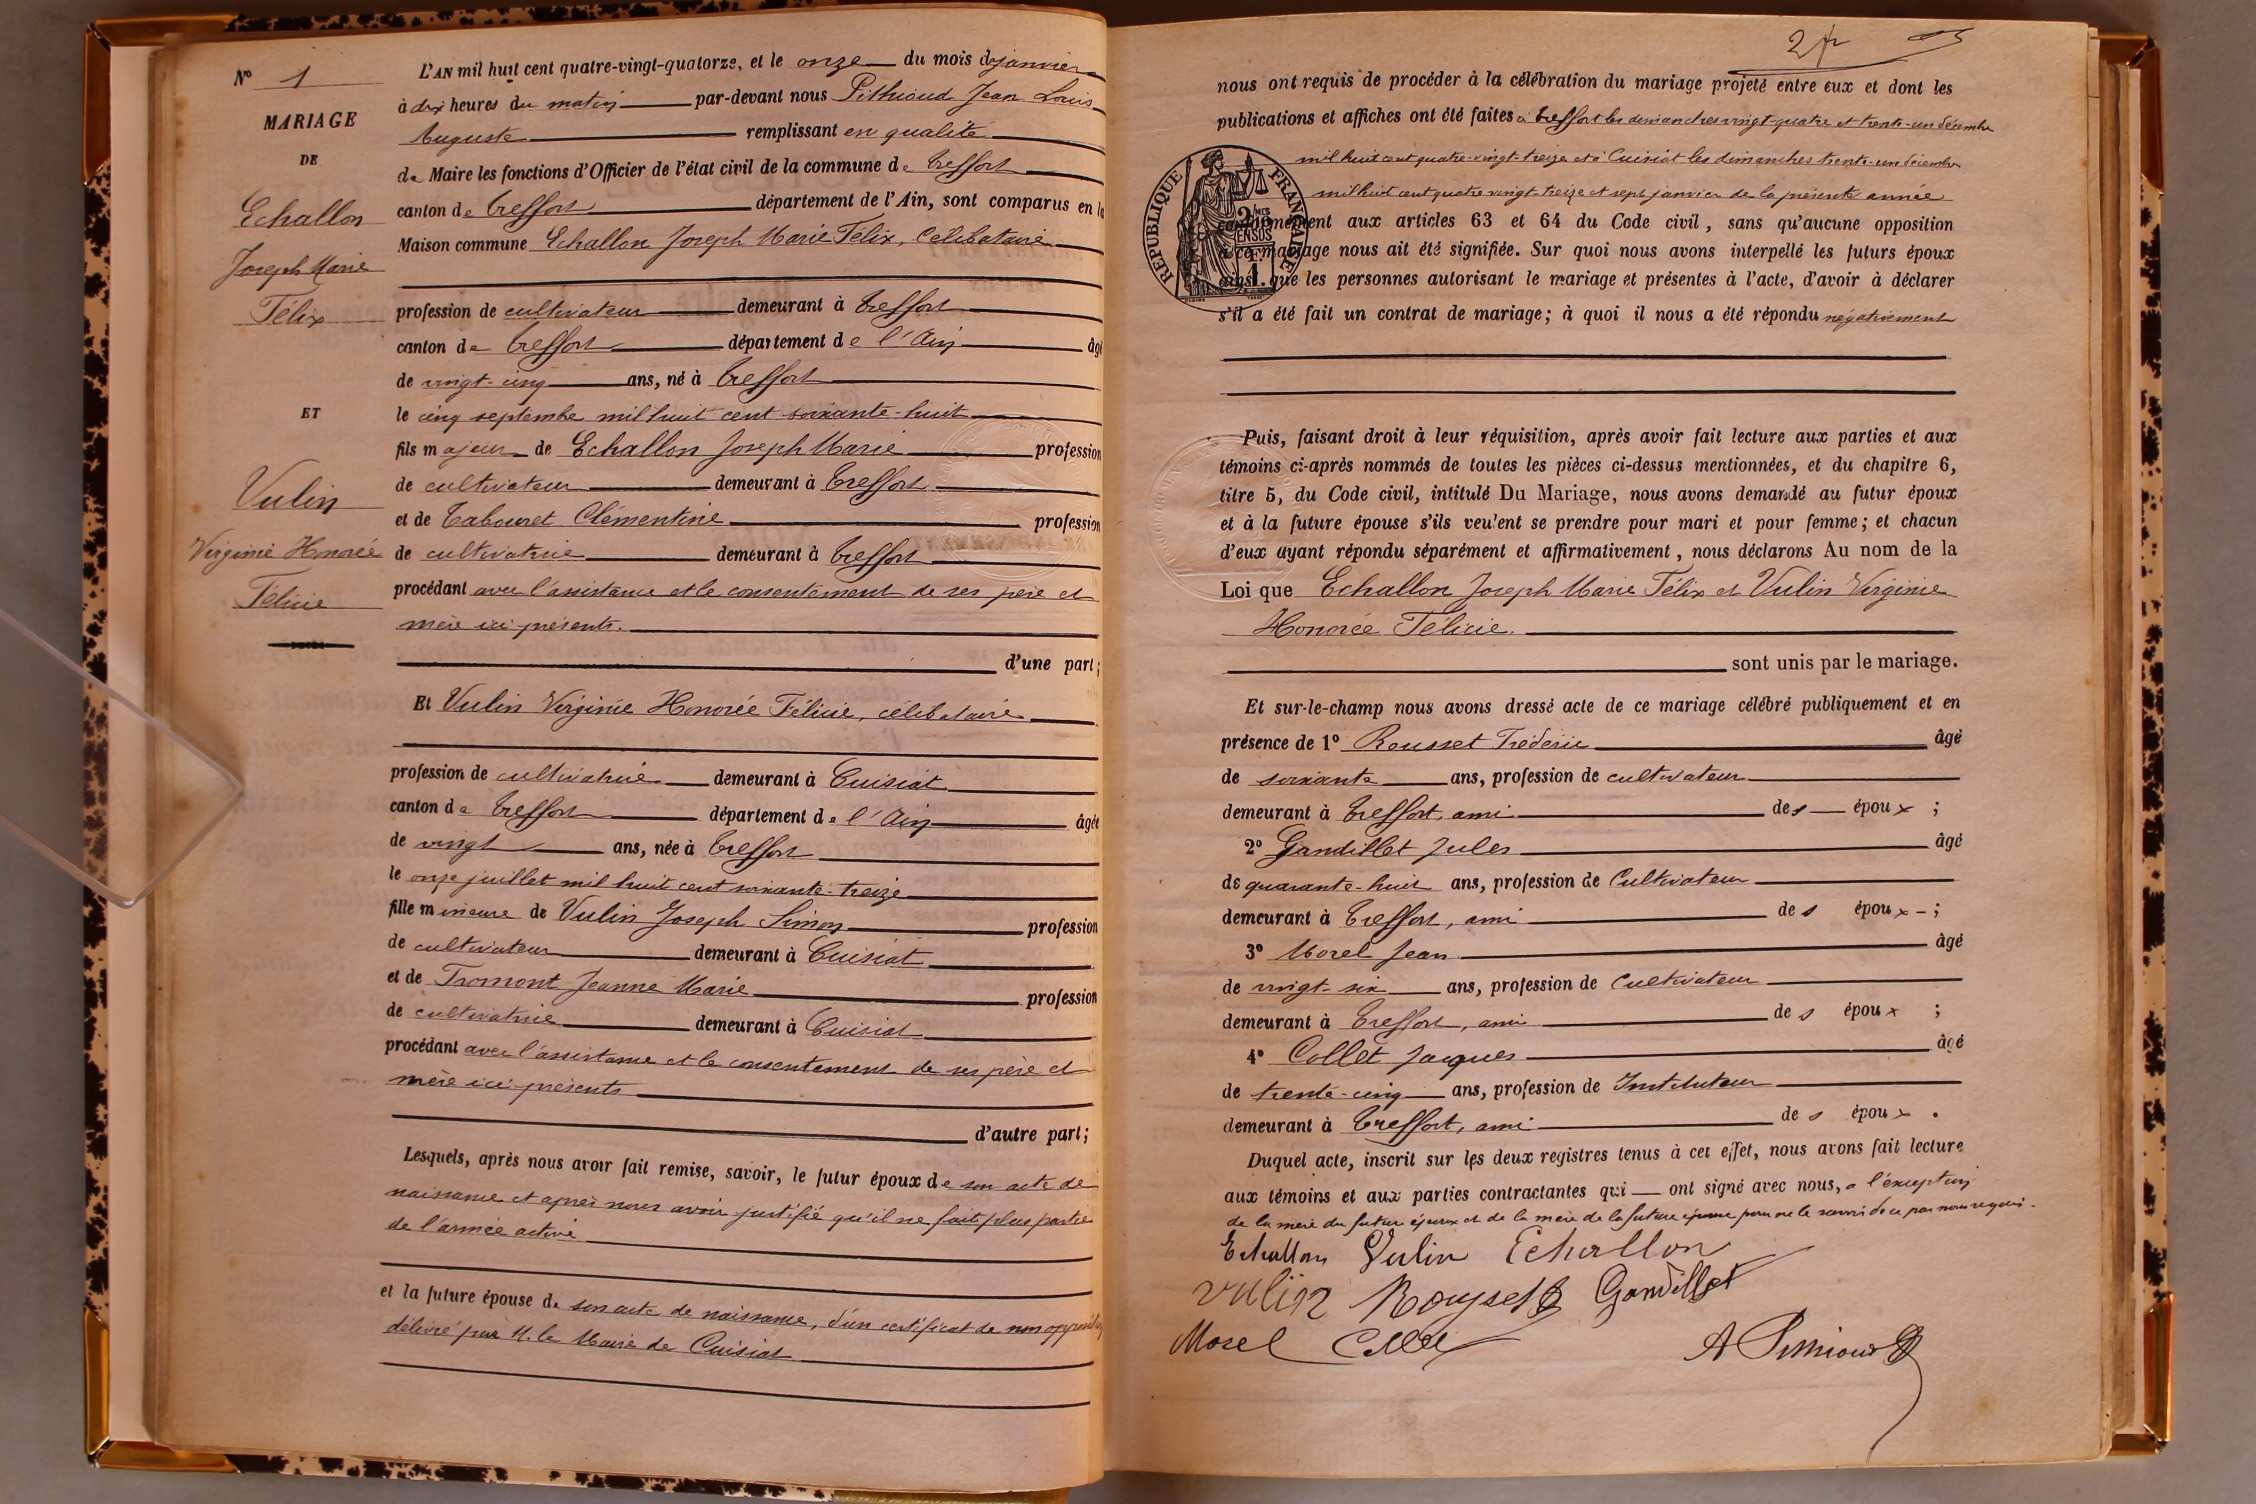 N° 1
MARIAGE
DE
Echallon
Joseph Marie
Félix
ET
Vulin
Virginie Honorée
Félicie
L'AN mil huit cent quatre-vingt-quatorze, et le onze du mois de janvier
à dix heures du matin par-devant nous Pithioud Jean Louis
Auguste remplissant en qualité
de Maire les fonctions d'Officier de l'état civil de la commune de Treffort
canton de Treffort département de l'Ain, sont comparus en la
Maison commune Echallon Joseph Marie Félix, célibataire
profession de cultivateur demeurant à Treffort
canton de Treffort département de l'Ain âgé
de vingt-cinq ans, né à Treffort
le cinq septembre mil huit cent soixante-huit
fils majeur de Echallon Joseph Marie profession
de cultivateur demeurant à Treffort
et de Tabouret Clémentine profession
de cultivatrice demeurant à Treffort
procédant avec l'assistance et le consentement de ses père et
mère ici présents.
d'une part;
Et Vulin Virginie Honorée Félicie, célibataire
profession de cultivatrice demeurant à Cuisiat
canton de Treffort département de l'Ain âgée
de vingt ans, née à Treffort
le onze juillet mil huit cent soixante-treize
fille mineure de Vulin Joseph Simon profession
de cultivateur demeurant à Cuisiat
et de Fromont Jeanne Marie profession
de cultivatrice demeurant à Cuisiat
procédant avec l'assistance et le consentement de ses père et
mère ici présents
d'autre part;
Lesquels, après nous avoir fait remise, savoir, le futur époux de son acte de
naissance et après nous avoir justifié qu'il ne fait plus partie
de l'armée active
et la future épouse de son acte de naissance, d'un certificat de non opposition
délivré par M. le Maire de Cuisiat
nous ont requis de procéder à la célébration du mariage projeté entre eux et dont les
publications et affiches ont été faites à Treffort les dimanches vingt-quatre et trente-un décembre
mil huit cent quatre-vingt-treize et à Cuisiat les dimanches trente-un décembre
mil huit cent quatre vingt-treize et sept janvier de la présente année
RÉPUBLIQUE FRANÇAISE
conformément aux articles 63 et 64 du Code civil, sans qu'aucune opposition
à ce mariage nous ait été signifiée. Sur quoi nous avons interpellé les futurs époux
ainsi que les personnes autorisant le mariage et présentes à l'acte, d'avoir à déclarer
s'il a été fait un contrat de mariage; à quoi il nous a été répondu négativement
Puis, faisant droit à leur réquisition, après avoir fait lecture aux parties et aux
témoins ci-après nommés de toutes les pièces ci-dessus mentionnées, et du chapitre 6,
titre 5, du Code civil, intitulé Du Mariage, nous avons demandé au futur époux
et à la future épouse s'ils veulent se prendre pour mari et pour femme; et chacun
d'eux ayant répondu séparément et affirmativement, nous déclarons Au nom de la
Loi que Echallon Joseph Marie Félix et Vulin Virginie
Honorée Félicie.
sont unis par le mariage.
Et sur-le-champ nous avons dressé acte de ce mariage célébré publiquement et en
présence de 1° Rousset Frédéric âgé
de soixante ans, profession de cultivateur
demeurant à Treffort, ami des époux;
2° Gandillet Jules âgé
de quarante-huit ans, profession de Cultivateur
demeurant à Treffort, ami des époux;
3° Morel Jean âgé
de vingt-six ans, profession de Cultivateur
demeurant à Treffort, ami des époux;
4° Collet Jacques âgé
de trente-cinq ans, profession de Instituteur
demeurant à Treffort, ami des époux.
Duquel acte, inscrit sur les deux registres tenus à cet effet, nous avons fait lecture
aux témoins et aux parties contractantes qui ont signé avec nous, à l'exception
de la mère du futur époux et de la mère de la future épouse pour ne le savoir de ce par nous requis.
Echallon Vulin Echallon
Vulin Rousset Gandillet
Morel Collet A Pithioud